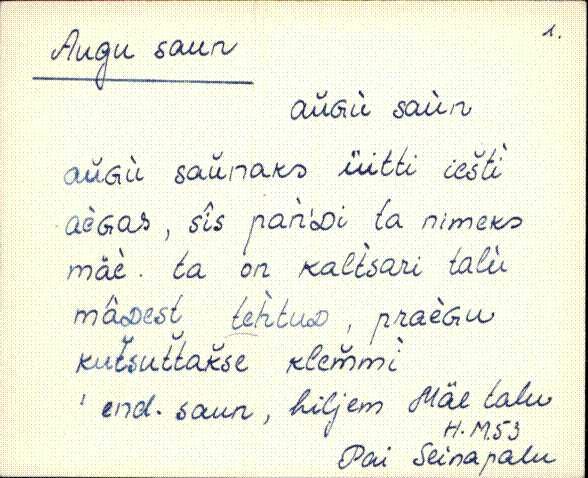 1.
Augu saun
aŭGù saùn
aŭGù saŭnaks üitti iešti
aèGas, sîs pań'Di ta nimeks
mäè. ta on kaltsari talù
mâDest tehtuD, praèGu
kutsuttakse klemmi
end. saun, hiljem Mäe talu
H. M. 53
Pai Seinapalu